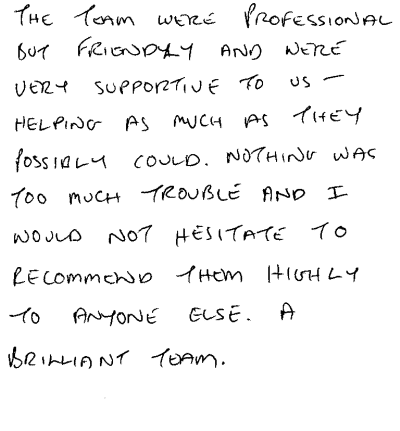 THE TEAM WERE PROFESSIONAL
BUT FRIENDLY AND WERE
VERY SUPPORTIVE TO US -
HELPING AS MUCH AS THEY
POSSIBLY COULD. NOTHING WAS
TOO MUCH TROUBLE AND I
WOULD NOT HESITATE TO
RECOMMEND THEM HIGHLY
TO ANYONE ELSE. A
BRILLIANT TEAM.